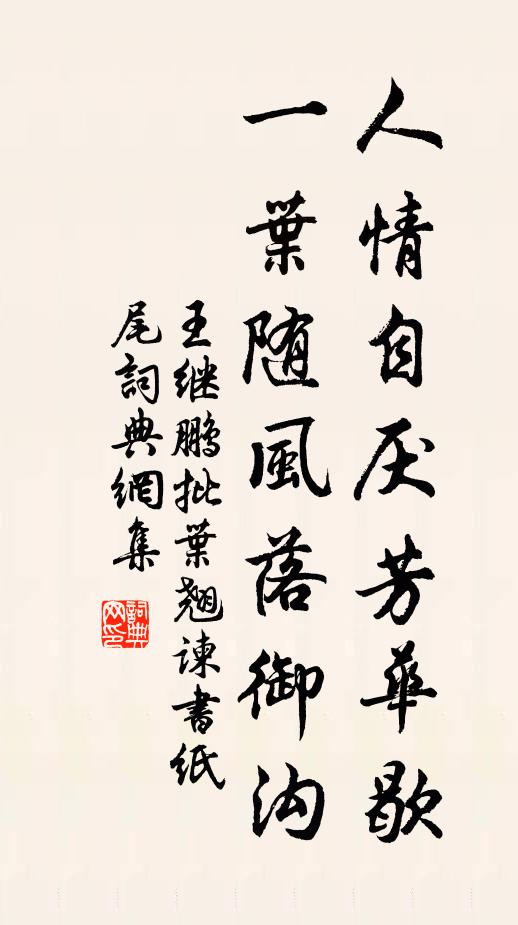 人情自厌芳華歇
一葉随風落御沟
王继鹏批葉翘谏書纸
尾詞典網集
詞典网印